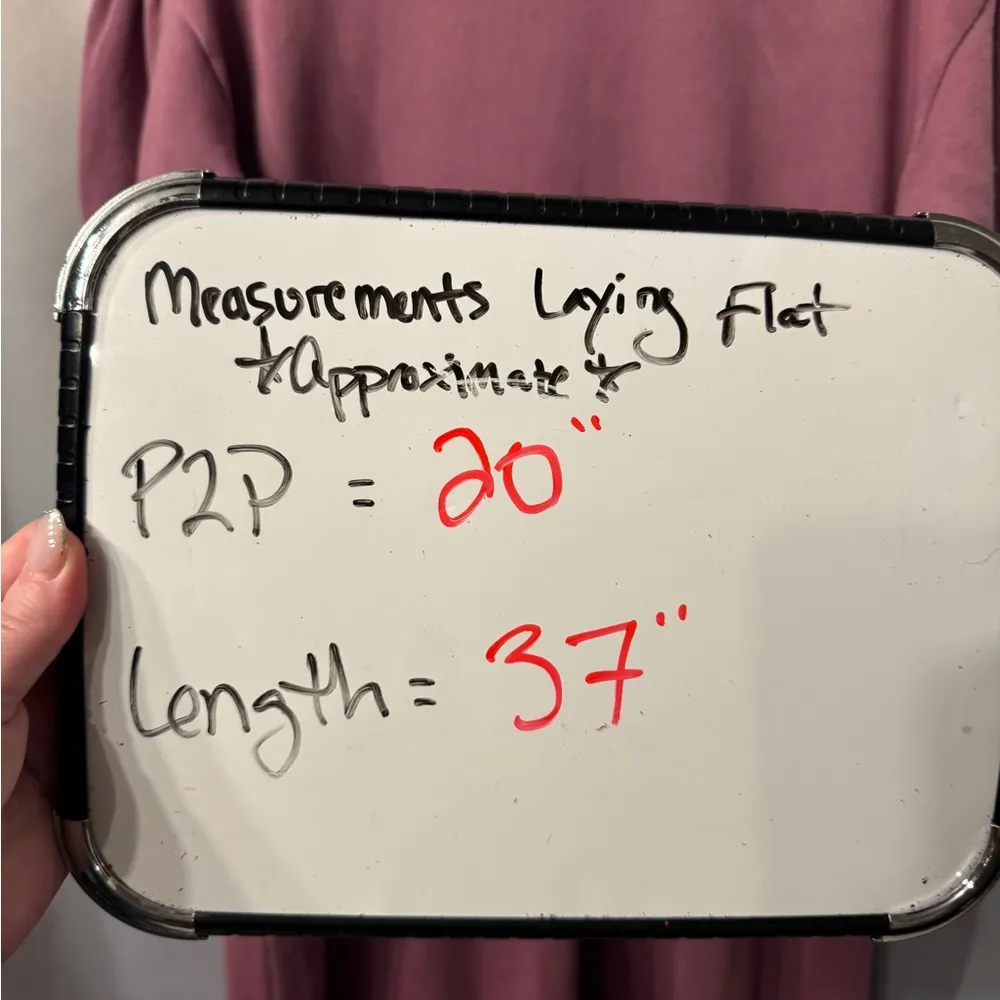 Measurements Laying Flat
*Approximate*
P2P = 20"
Length = 37"